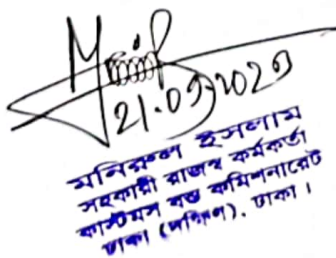 21.09.2029
মনিরুল ইসলাম
সহকারী রাজস্ব কর্মকর্তা
কাস্টমস বন্ড কমিশনারেট
ঢাকা (দক্ষিণ), ঢাকা।